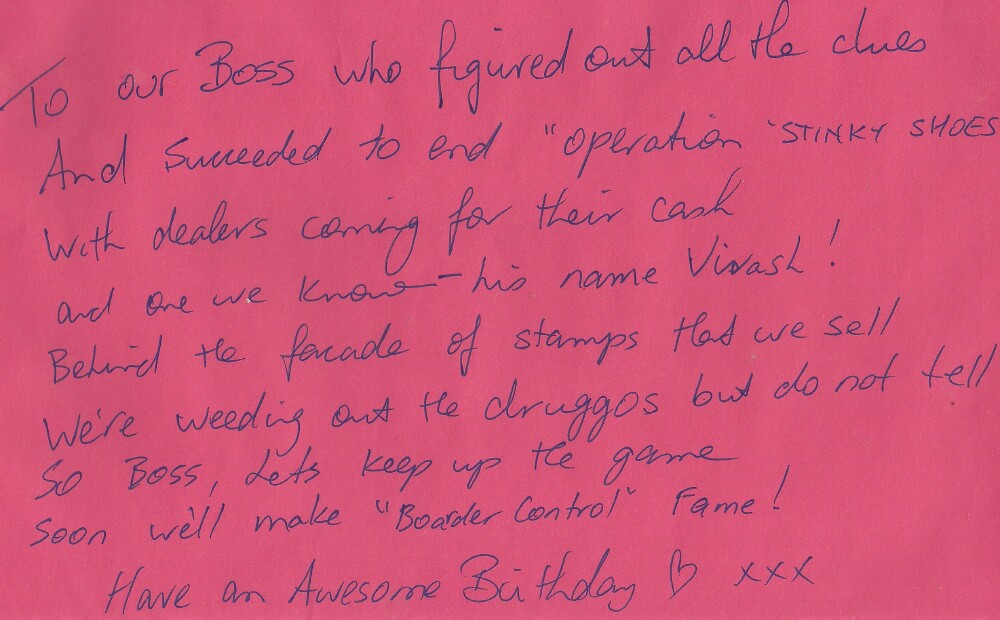 To our Boss who figured out all the clues
And Succeeded to end "operation 'STINKY SHOES
With dealers coming for their cash
and one we know - his name Vivash!
Behind the facade of stamps that we sell
We're weeding out the druggos but do not tell
So Boss, Lets keep up the game
Soon we'll make "Boarder Control" Fame!
Have an Awesome Birthday ♡ xxx